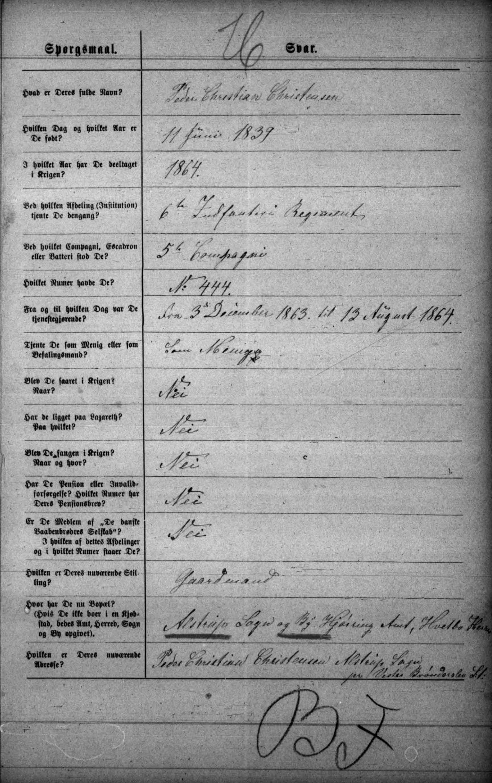 16
Spørgsmaal.
Svar.
Hvad er Deres fulde Navn?
Peder Christian Christensen
Hvilken Dag og hvilket Aar er
De født?
11 Juni 1839
I hvilket Aar har De deeltaget
i Krigen?
1864.
Ved hvilken Afdeling (Institution)
tjente De dengang?
6te Infanteri Regiment
Ved hvilket Compagni, Escadron
eller Batteri stod De?
5te Compagni
Hvilket Numer havde De?
No 444.
Fra og til hvilken Dag var De
tjenestegjørende?
fra 3de December 1863. til 13 August 1864.
Tjente De som Menig eller som
Befalingsmand?
Som Menige
Blev De saaret i Krigen?
Naar?
Nei
Har De ligget paa Lazareth?
Paa hvilket?
Nei
Blev De fangen i Krigen?
Naar og hvor?
Nei
Har De Pension eller Invalid-
forsørgelse? Hvilket Numer har
Deres Pensionsbrev?
Nei
Er De Medlem af „De danske
Vaabenbrødres Selskab"?
I hvilken af dettes Afdelinger
og i hvilket Numer staaer De?
Nei
Hvilken er Deres nuværende Stil-
ling?
Gaardmand
Hvor har De nu Bopæl?
(Hvis De ikke boer i en Kjøb-
stad, bedes Amt, Herred, Sogn
og By opgivet).
Alstrup Sogn og By Hjørring Amt, Hvetbo
Hvilken er Deres nuværende
Adresse?
Peder Christian Christensen Alstrup Sogn
pr Vester Brønderslev St.
B J